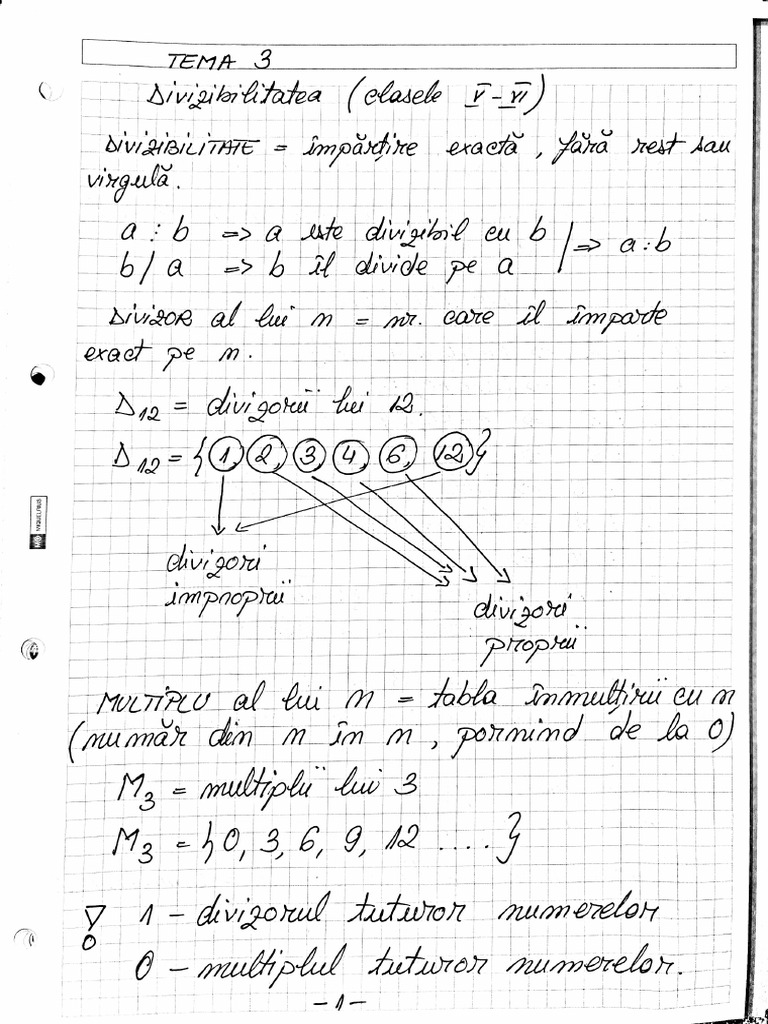 TEMA 3
Divizibilitatea (clasele V-VI)
DIVIZIBILITATE = împărțire exactă, fără rest sau
virgulă.
a ⋮ b => a este divizibil cu b
b / a => b îl divide pe a
=> a : b
DIVIZOR al lui n = nr. care îl împarte
exact pe n.
D12 = divizorii lui 12.
D12 = {1, 2, 3, 4, 6, 12}
divizori
improprii
divizori
proprii
MULTIPLU al lui n = tabla înmulțirii cu n
(număr din n în n, pornind de la 0)
M3 = multiplii lui 3
M3 = {0, 3, 6, 9, 12 ....}
1 - divizorul tuturor numerelor
0 - multiplul tuturor numerelor.
-1-
MIQUELRIUS